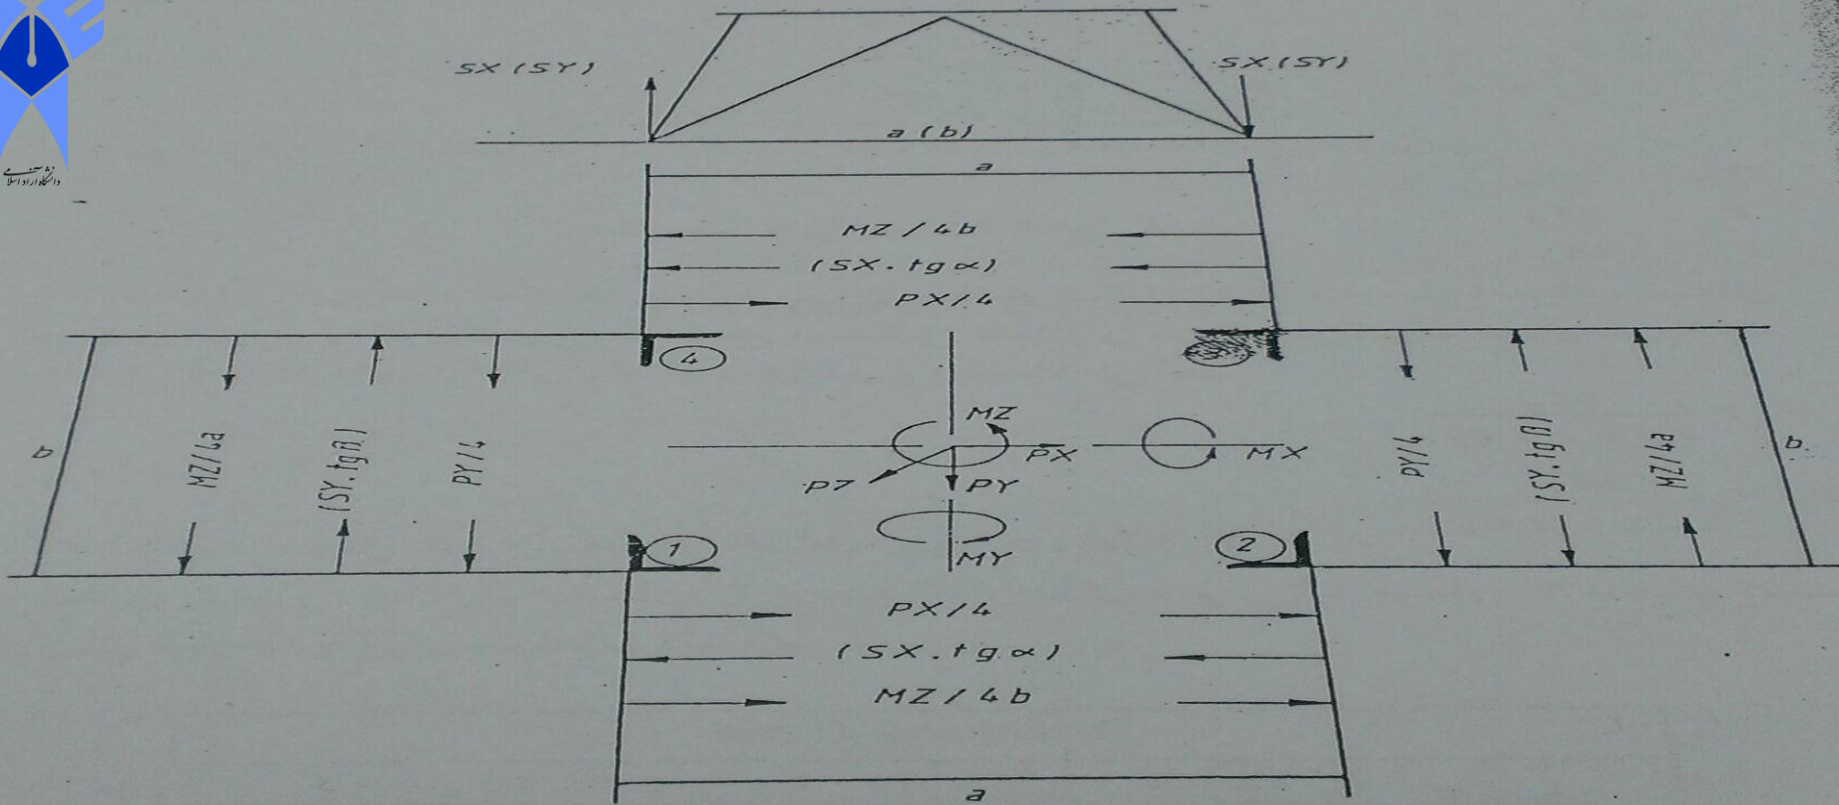 دانشگاه آزاد اسلامی
SX (SY)
SX (SY)
a (b)
a
MZ / 4b
(SX. tg α)
PX/4
4
b
MZ/4a
(SY. tg β)
PY/4
MZ
PX
MX
PZ
PY
MY
PY/4
(SY. tg β)
MZ/4a
b
1
2
PX/4
(SX. tg α)
MZ / 4b
a